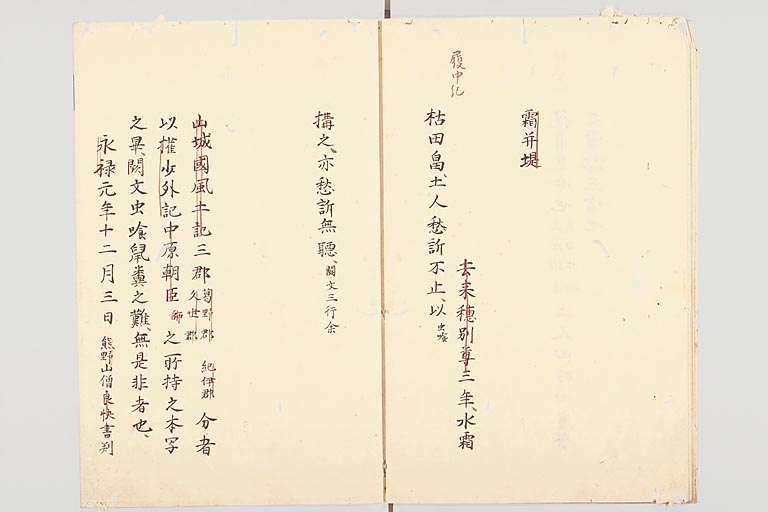 霜并堤
去来穂別尊三年、水霜
枯田畠、土人愁訴不止、以虫喰
履中紀
搆之、亦愁訴無聴、闕文三行余
山城國風土記三郡葛野郡久世郡紀伊郡分者
以權少外記中原朝臣之所持之本写
之畢、闕文虫喰鼠糞之難、無是非者也、
永禄元年十二月三日熊野山僧良快書判